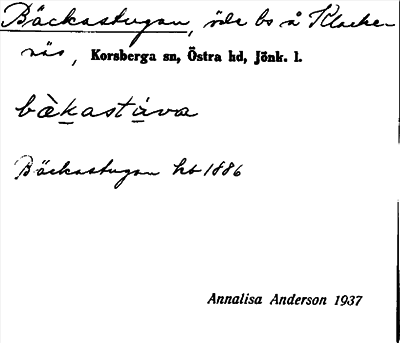 Bäckastugan, öde bs å Klacke-
näs, Korsberga sn, Östra hd, Jönk. l.
bàkastùva
Bäckastugan hb 1886
Annalisa Anderson 1937